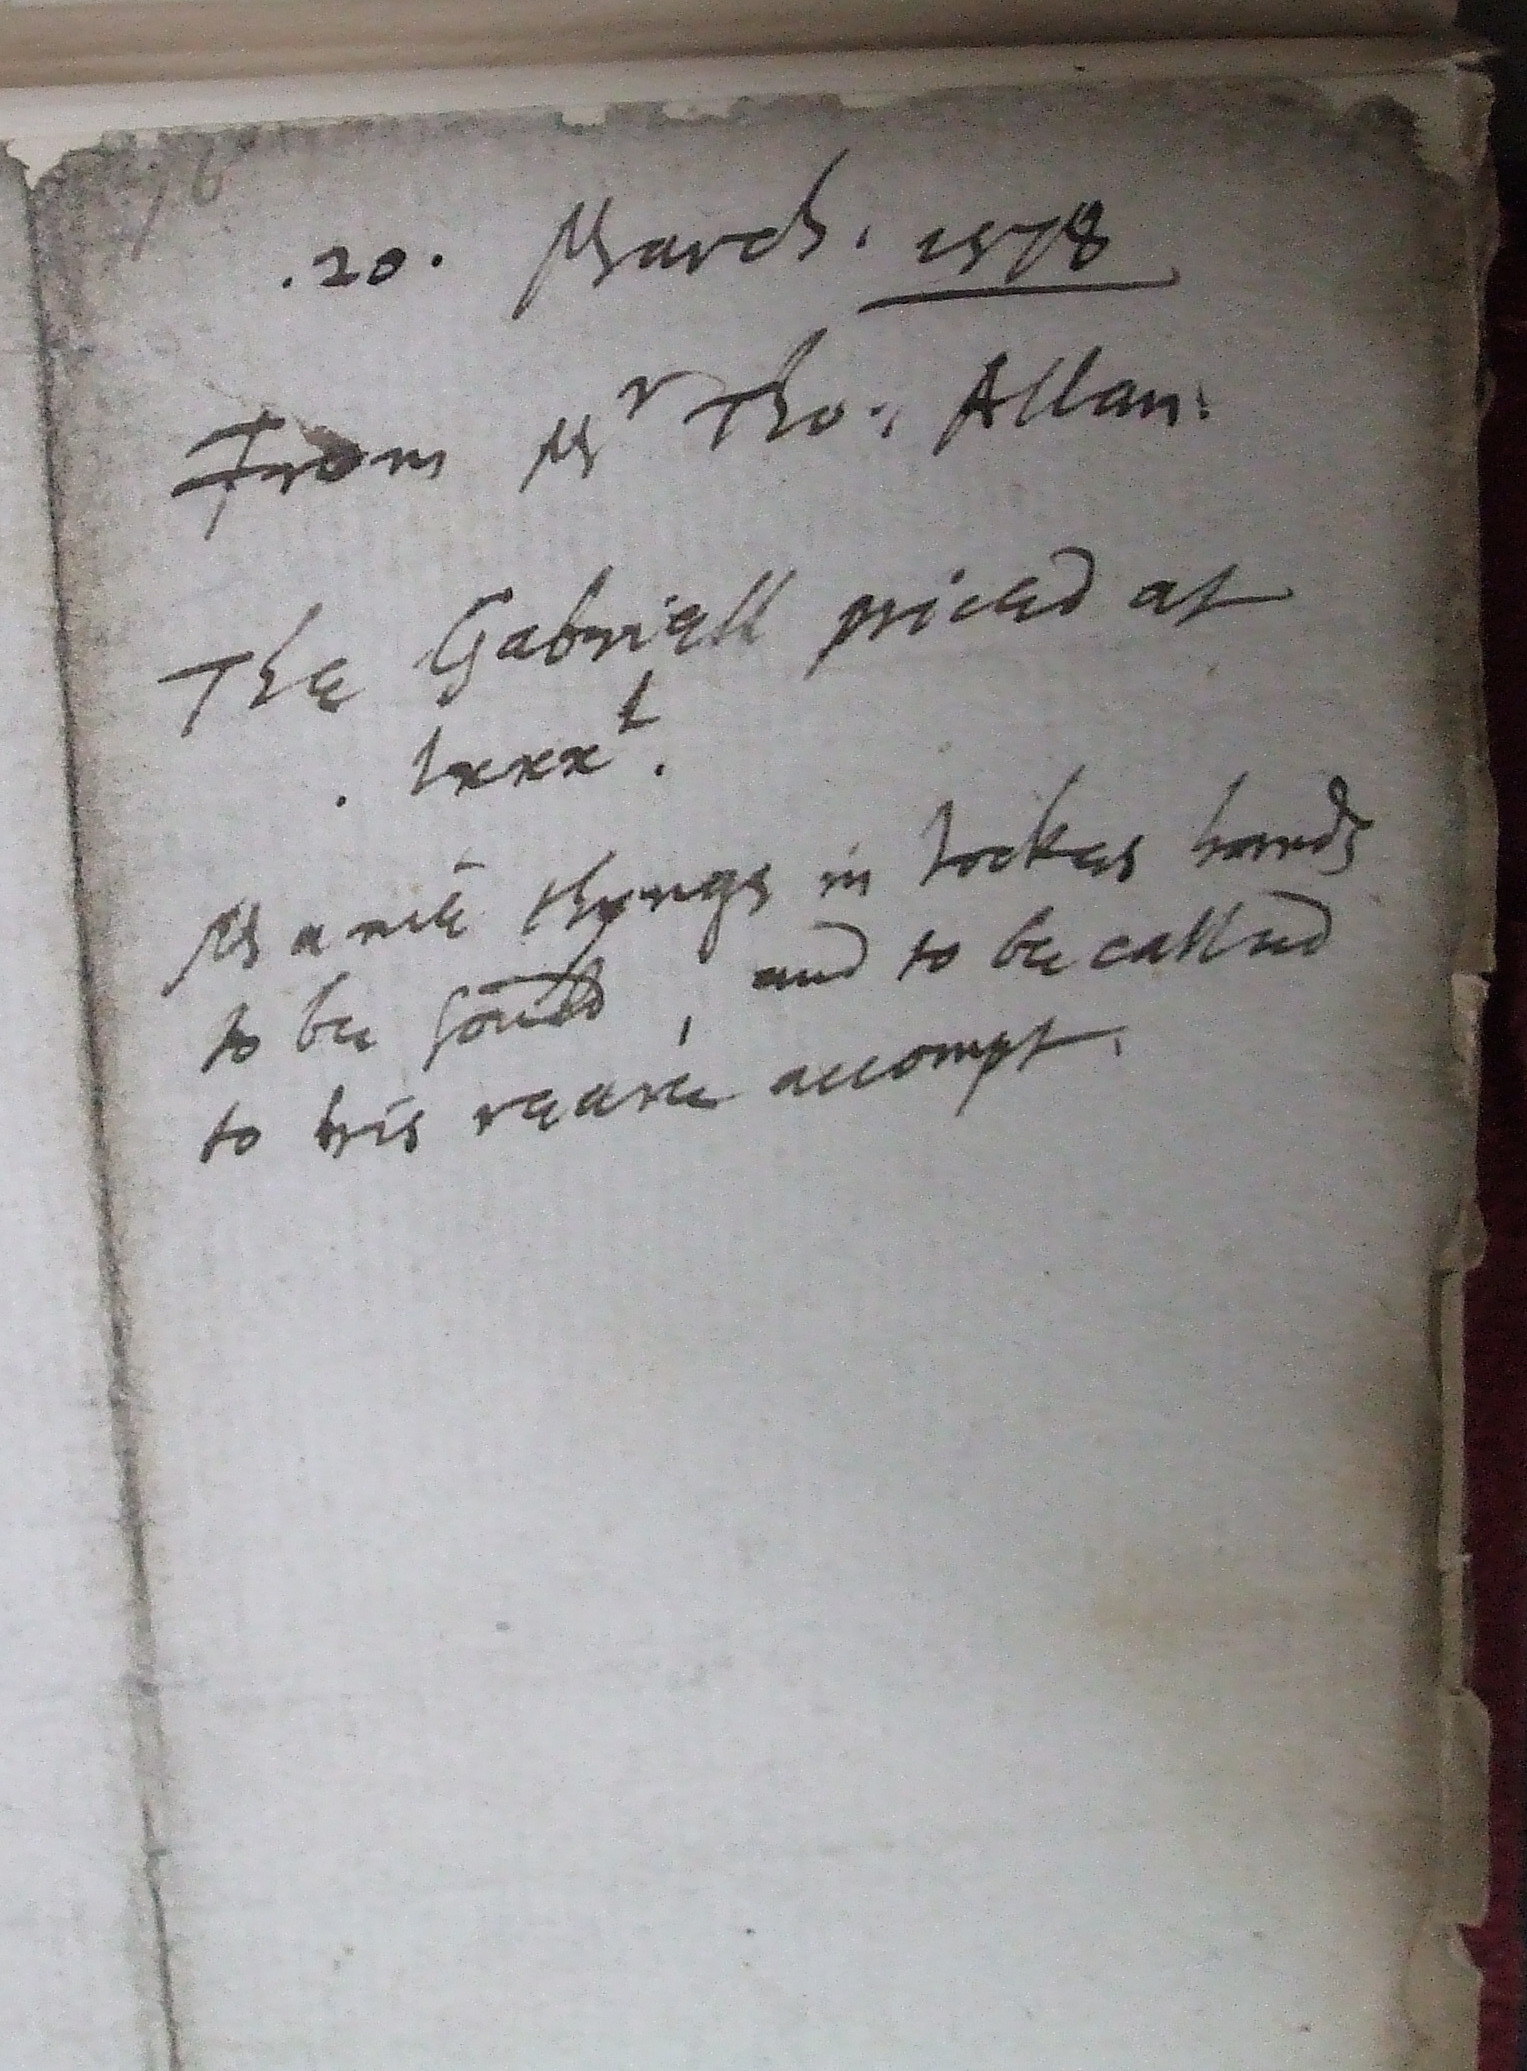 76
.20. March. 1578
From Mr Tho. Allan.
The Gabriell priced at
. lxxx l.
Manie thyngs in Lockes hands
to be sould, and to be called
to his neare accompt.